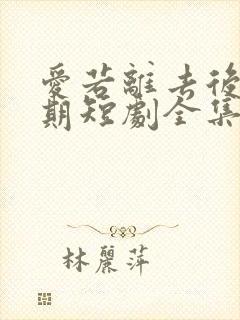 愛若離去後
期短劇全集
林麗萍